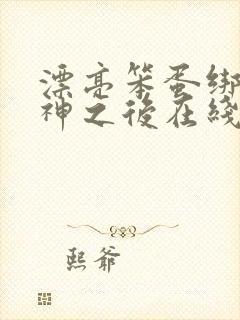 漂亮笨蛋绑
神之後在綫
熙爷